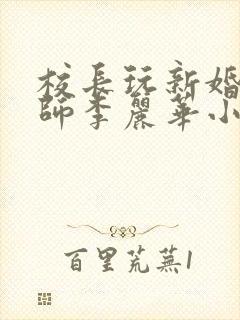 校長玩新婚
師李麗華小
百里荒蕪1